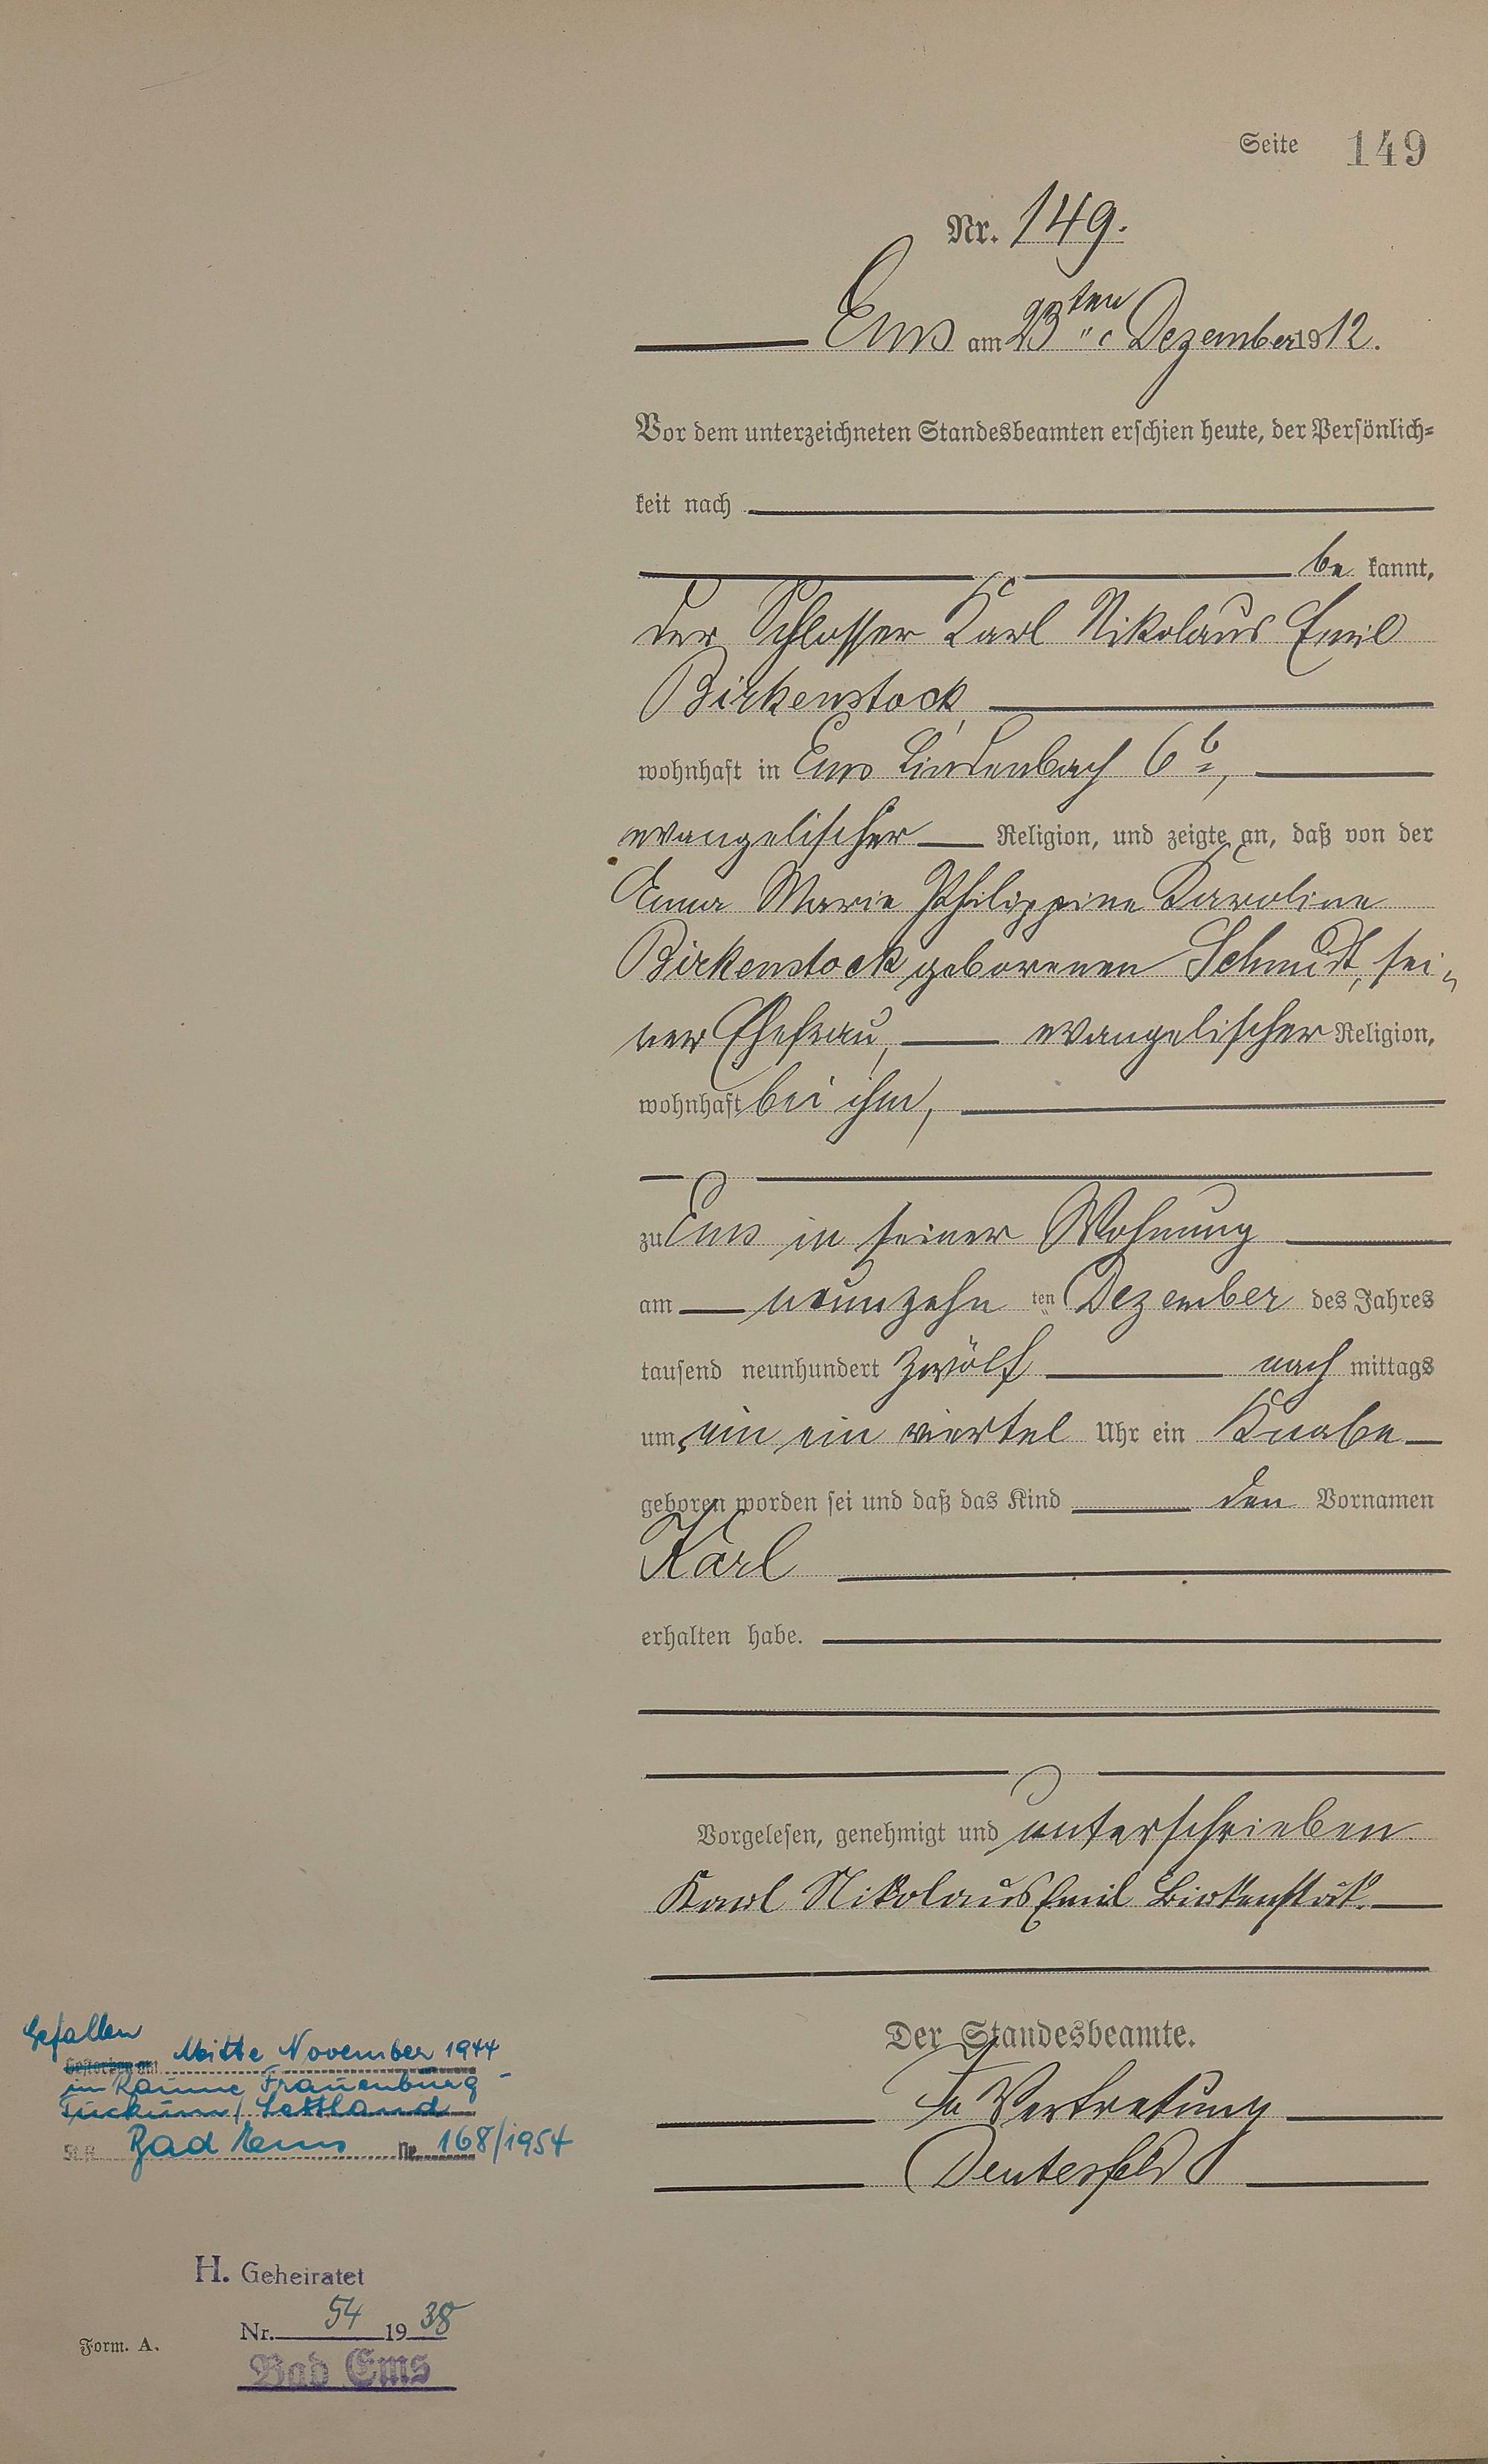 Seite 149
Nr. 149.
Ems am 23ten Dezember 1912.
Vor dem unterzeichneten Standesbeamten erschien heute, der Persönlich=
keit nach
be kannt,
der Schlosser Karl Nikolaus Emil
Birkenstock,
wohnhaft in Ems Lindenbach 6b,
evangelischer Religion, und zeigte an, daß von der
Anna Marie Philippine Karoline
Birkenstock geborenen Schmidt, sei-
ner Ehefrau, evangelischer Religion,
wohnhaft bei ihm,
zu Ems in seiner Wohnung
am neunzehn ten Dezember des Jahres
tausend neunhundert zwölf nach mittags
um ein ein viertel Uhr ein Knabe
geboren worden sei und daß das Kind den Vornamen
Karl
erhalten habe.
Vorgelesen, genehmigt und unterschrieben
Karl Nikolaus Emil Birkenstock.
Der Standesbeamte.
In Vertretung
Deutesfeld
Gefallen
Gestorben am Mitte November 1944
im Raume Frauenburg -
Tuckum / Lettland
St.A. Bad Ems Nr. 168/1954
H. Geheiratet
Nr. 54 1938
Bad Ems
Form. A.